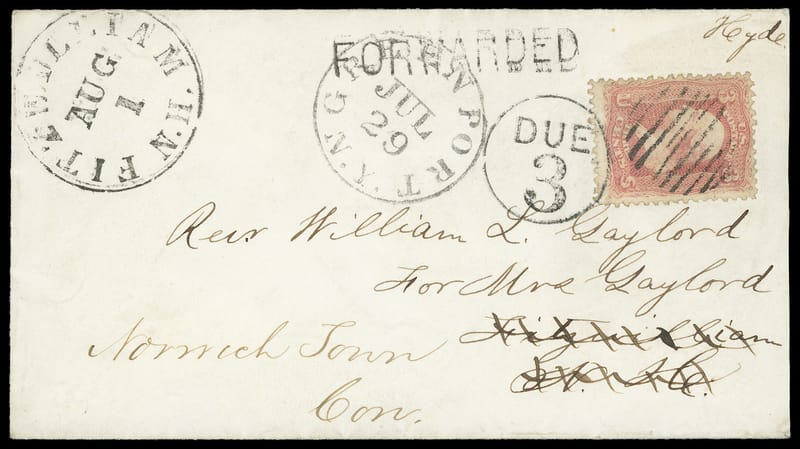 Hyde
FORWARDED
FITZWILLIAM. N.H.
AUG
1
GREENPORT N.Y.
JUL
29
DUE
3
Revr William L. Gaylord
For Mrs Gaylord
Fitzwilliam
N. H.
Norwich Town
Con.